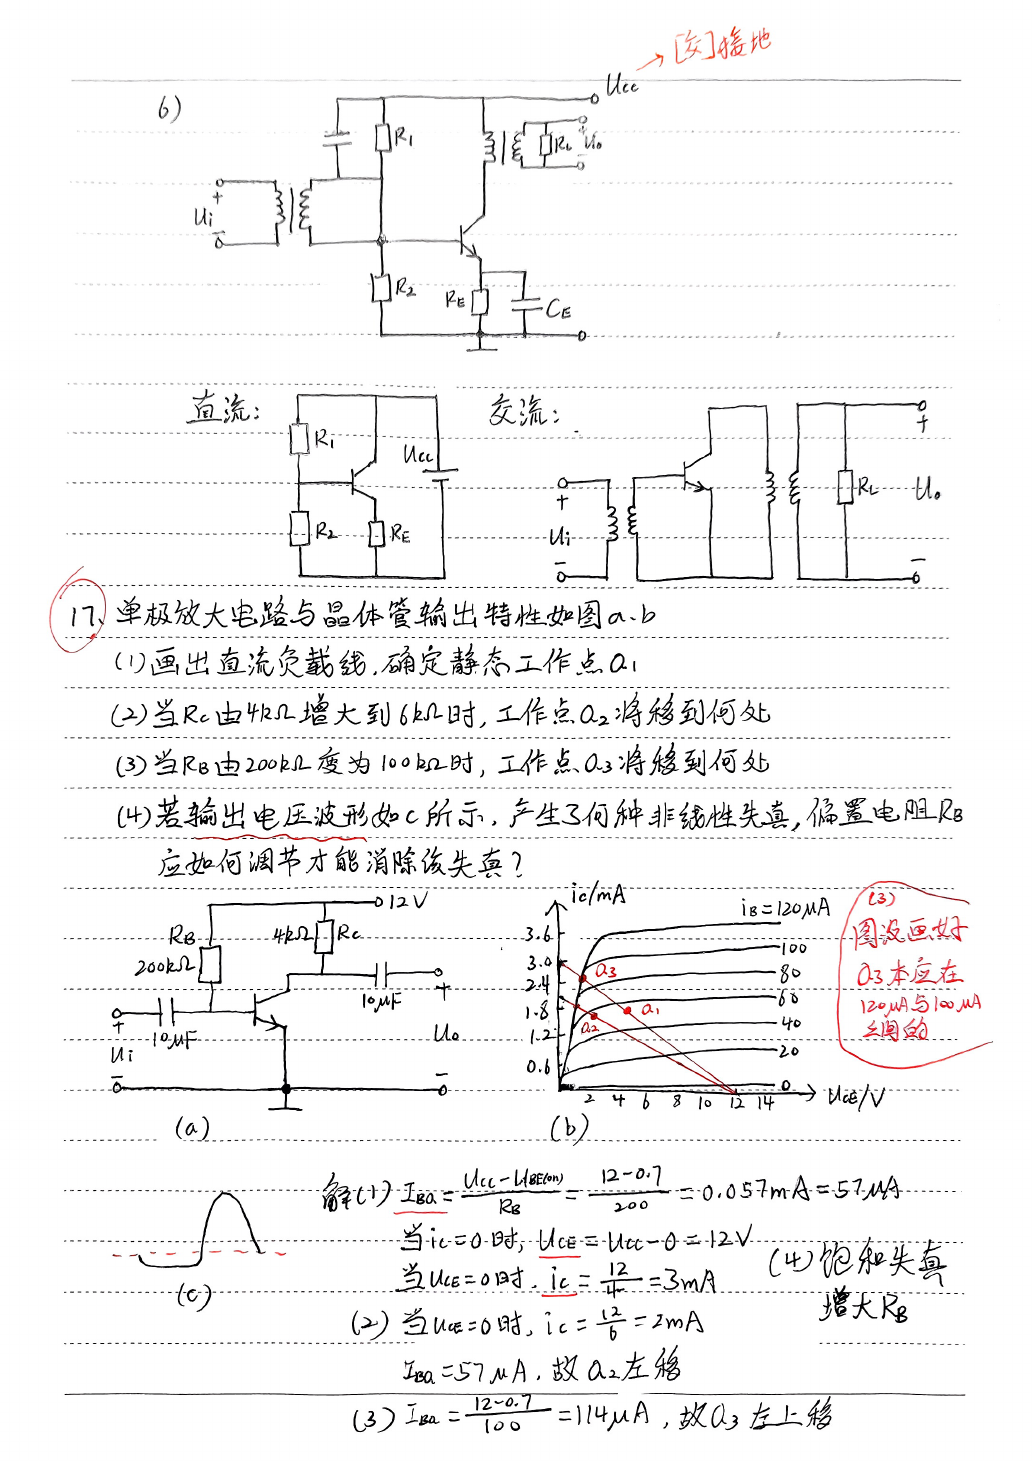 →[交]接地
6)
Ucc
R1
RL
+
Uo
-
+
Ui
-
R2
RE
CE
直流:
交流:
R1
Ucc
R2
RE
+
Ui
-
RL
+
Uo
-
17、单极放大电路与晶体管输出特性如图a.b
(1)画出直流负载线,确定静态工作点Q1
(2)当Rc由4kΩ增大到6kΩ时,工作点Q2将移到何处
(3)当RB由200kΩ变为100kΩ时,工作点Q3将移到何处
(4)若输出电压波形如c所示,产生了何种非线性失真,偏置电阻RB
应如何调节才能消除该失真?
12V
RB
200kΩ
4kΩ
Rc
10μF
10μF
+
Ui
-
+
Uo
-
(a)
ic/mA
iB=120μA
3.6
3.0
2.4
1.8
1.2
0.6
100
80
60
40
20
0
Q3
Q1
Q2
2 4 6 8 10 12 14
UCE/V
(b)
(3)
图没画好
Q3本应在
120μA与100μA
之间的
(c)
解(1) IBQ=(Ucc-UBE(on))/RB=(12-0.7)/200=0.057mA=57μA
当ic=0时, UCE=Ucc-0=12V
当UCE=0时, ic=12/4=3mA
(2) 当UCE=0时, ic=12/6=2mA
IBQ=57μA,故Q2左移
(3) IBQ=(12-0.7)/100=114μA,故Q3左上移
(4)饱和失真
增大RB